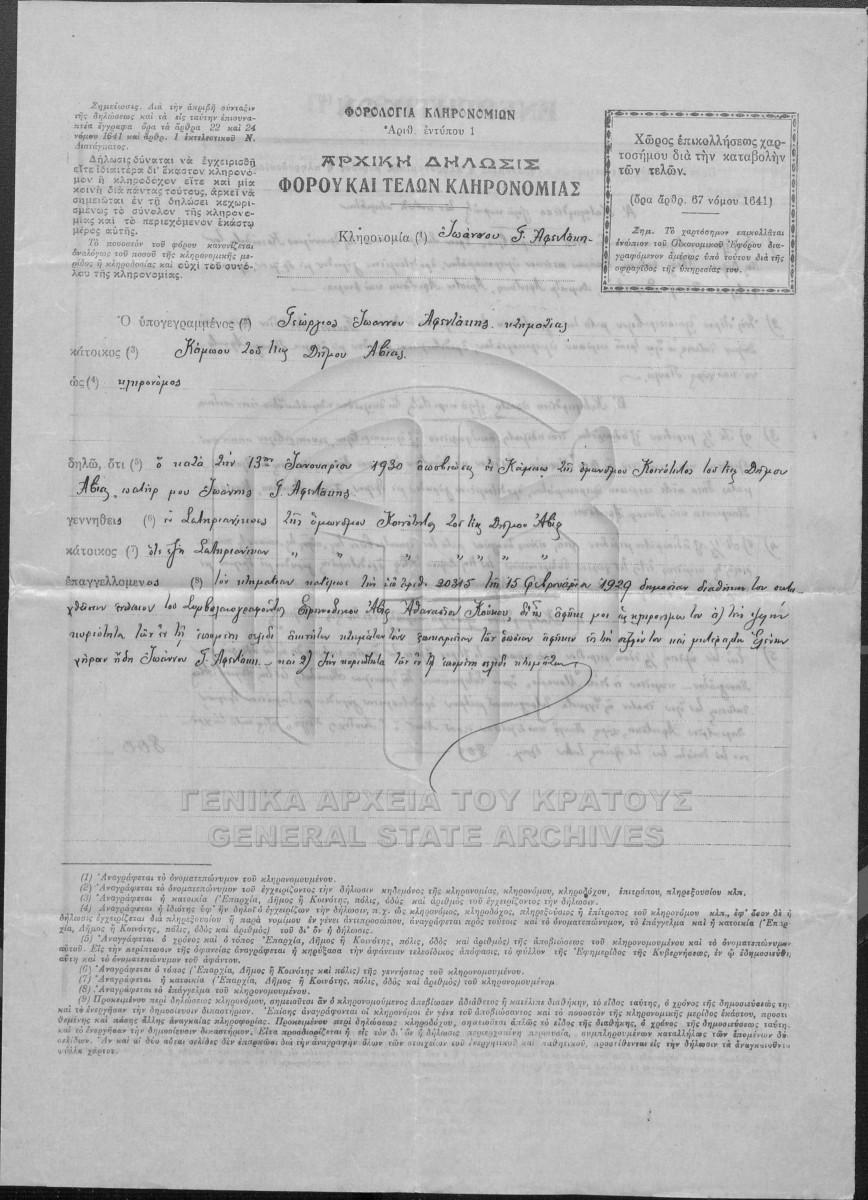 Σημείωσις. Διὰ τὴν ἀκριβῆ σύνταξιν
τῆς δηλώσεως καὶ τὰ εἰς ταύτην ἐπισυνα-
πτέα ἔγγραφα ὅρα τὰ ἄρθρα 22 καὶ 24
νόμου 1641 καὶ ἄρθρ. 1 ἐκτελεστικοῦ Ν.
Διατάγματος.
Δήλωσις δύναται νὰ ἐγχειρισθῇ
εἴτε ἰδιαιτέρα δι' ἕκαστον κληρονό-
μον ἢ κληροδόχον εἴτε καὶ μία
κοινὴ διὰ πάντας τούτους, ἀρκεῖ νὰ
σημειῶται ἐν τῇ δηλώσει κεχωρι-
σμένως τὸ σύνολον τῆς κληρονο-
μίας καὶ τὸ περιεχόμενον ἑκάστῳ
μέρος αὐτῆς.
Τὸ ποσοστὸν τοῦ φόρου κανονίζεται
ἀναλόγως τοῦ ποσοῦ τῆς κληρονομικῆς με-
ρίδος ἢ κληροδοσίας καὶ οὐχὶ τοῦ συνό-
λου τῆς κληρονομίας.
ΦΟΡΟΛΟΓΙΑ ΚΛΗΡΟΝΟΜΙΩΝ
Ἀριθ. ἐντύπου 1
ΑΡΧΙΚΗ ΔΗΛΩΣΙΣ
ΦΟΡΟΥ ΚΑΙ ΤΕΛΩΝ ΚΛΗΡΟΝΟΜΙΑΣ
Κληρονομία (1) Ἰωάννου Γ. Ἀφεντάκη
Χῶρος ἐπικολλήσεως χαρ-
τοσήμου διὰ τὴν καταβολὴν
τῶν τελῶν.
(ὅρα ἄρθρ. 67 νόμου 1641)
Σημ. Τὸ χαρτόσημον ἐπικολλᾶται
ἐνώπιον τοῦ Οἰκονομικοῦ Ἐφόρου δια-
γραφόμενον ἀμέσως ὑπὸ τούτου διὰ τῆς
σφραγῖδος τῆς ὑπηρεσίας του.
Ὁ ὑπογεγραμμένος (2) Γεώργιος Ἰωάννου Ἀφεντάκης κτηματίας
κάτοικος (3) Κάμπου τοῦ τέως Δήμου Ἀβίας
ὡς (4) κληρονόμος
δηλῶ, ὅτι (5) ὁ κατὰ τὴν 13ην Ἰανουαρίου 1930 ἀποβιώσας ἐν Κάμπῳ τῆς ὁμωνύμου Κοινότητος τοῦ τέως Δήμου
Ἀβίας πατήρ μου Ἰωάννης Γ. Ἀφεντάκης
γεννηθεὶς (6) ἐν τῆς ὁμωνύμου Κοινότητος τοῦ τέως Δήμου Ἀβίας
κάτοικος (7) " " " " " " "
ἐπαγγελλόμενος (8) τὸν κτηματίαν κατέλιπε τὴν ὑπ' ἀριθ. 20315 τῆς 15 Φεβρουαρίου 1929 δημοσίαν διαθήκην του συντα-
χθεῖσαν ἐνώπιον τοῦ Συμβολαιογραφοῦντος Εἰρηνοδίκου Ἀβίας Ἀθανασίου Κούκου, δι' ἧς ἀφῆκε μοι ὡς κληρονόμῳ του α) τὴν ψιλὴν
κυριότητα τῶν ἐν τῇ ἑπομένῃ σελίδι κτημάτων τὴν ἐπικαρπίαν τῶν ὁποίων ἀφῆκεν τῇ συζύγῳ του καὶ μητέρα μου Ἑλένην
χήραν ἤδη Ἰωάννου Γ. Ἀφεντάκη καὶ 2) τὴν κυριότητα τῶν ἐν τῇ ἑπομένῃ σελίδι κτημάτων
ΓΕΝΙΚΑ ΑΡΧΕΙΑ ΤΟΥ ΚΡΑΤΟΥΣ
GENERAL STATE ARCHIVES
(1) Ἀναγράφεται τὸ ὀνοματεπώνυμον τοῦ κληρονομουμένου.
(2) Ἀναγράφεται τὸ ὀνοματεπώνυμον τοῦ ἐγχειρίζοντος τὴν δήλωσιν κηδεμόνος τῆς κληρονομίας, κληρονόμου, κληροδόχου, ἐπιτρόπου, πληρεξουσίου κλπ.
(3) Ἀναγράφεται ἡ κατοικία (Ἐπαρχία, Δῆμος ἢ Κοινότης, πόλις, ὁδὸς καὶ ἀριθμὸς) τοῦ ἐγχειρίζοντος τὴν δήλωσιν.
(4) Ἀναγράφεται ἡ ἰδιότης ὑφ' ἣν δηλοῖ ὁ ἐγχειρίζων τὴν δήλωσιν, π.χ. ὡς κληρονόμος, κληροδόχος, πληρεξούσιος ἢ ἐπίτροπος τοῦ κληρονόμου κλπ., ἐφ' ὅσον δὲ ἡ
δήλωσις ἐγχειρίζεται διὰ πληρεξουσίου ἢ παρὰ νομίμου ἐν γένει ἀντιπροσώπου, ἀναγράφεται πρὸς τούτοις καὶ τὸ ὀνοματεπώνυμον, τὸ ἐπάγγελμα καὶ ἡ κατοικία (Ἐπαρ-
χία, Δῆμος ἢ Κοινότης, πόλις, ὁδὸς καὶ ἀριθμὸς) τοῦ δι' ὃν ἡ δήλωσις.
(5) Ἀναγράφεται ὁ χρόνος καὶ ὁ τόπος (Ἐπαρχία, Δῆμος ἢ Κοινότης, πόλις, ὁδὸς καὶ ἀριθμὸς) τῆς ἀποβιώσεως τοῦ κληρονομουμένου καὶ τὸ ὀνοματεπώνυμον
αὐτοῦ. Εἰς τὴν περίπτωσιν τῆς ἀφανείας ἀναγράφεται ἡ κηρύξασα τὴν ἀφάνειαν τελεσίδικος ἀπόφασις, τὸ φύλλον τῆς Ἐφημερίδος τῆς Κυβερνήσεως, ἐν ᾧ ἐδημοσιεύθη
αὕτη καὶ τὸ ὀνοματεπώνυμον τοῦ ἀφάντου.
(6) Ἀναγράφεται ὁ τόπος (Ἐπαρχία, Δῆμος ἢ Κοινότης καὶ πόλις) τῆς γεννήσεως τοῦ κληρονομουμένου.
(7) Ἀναγράφεται ἡ κατοικία (Ἐπαρχία, Δῆμος ἢ Κοινότης, πόλις, ὁδὸς καὶ ἀριθμὸς) τοῦ κληρονομουμένου.
(8) Ἀναγράφεται τὸ ἐπάγγελμα τοῦ κληρονομουμένου.
(9) Προκειμένου περὶ δηλώσεως κληρονόμου, σημειοῦται ἂν ὁ κληρονομούμενος ἀπεβίωσεν ἀδιάθετος ἢ κατέλιπε διαθήκην, τὸ εἶδος ταύτης, ὁ χρόνος τῆς δημοσιεύσεως της
καὶ τὸ ἐνεργῆσαν τὴν δημοσίευσιν δικαστήριον. Ἐπίσης ἀναγράφονται οἱ κληρονόμοι ἐν γένει τοῦ ἀποβιώσαντος καὶ τὸ ποσοστὸν τῆς κληρονομικῆς μερίδος ἑκάστου, προστι-
θεμένης καὶ πάσης ἄλλης ἀναγκαίας πληροφορίας. Προκειμένου περὶ δηλώσεως κληροδόχου, σημειοῦται ἁπλῶς τὸ εἶδος τῆς διαθήκης, ὁ χρόνος τῆς δημοσιεύσεως ταύτης
καὶ τὸ ἐνεργῆσαν τὴν δημοσίευσιν δικαστήριον. Εἶτα προσδιορίζεται ἡ εἰς τὸν δι' ὃν ἡ δήλωσις περιερχομένη περιουσία, συμπληρουμένων καταλλήλως τῶν ἑπομένων δύο
σελίδων. Ἂν καὶ αἱ δύο αὗται σελίδες δὲν ἐπαρκῶσι διὰ τὴν ἀναγραφὴν ὅλων τῶν στοιχείων τοῦ ἐνεργητικοῦ καὶ παθητικοῦ, προστίθενται εἰς τὴν δήλωσιν τὰ ἀναγκαιοῦντα
φύλλα χάρτου.